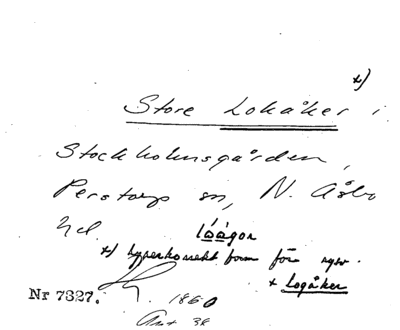 x)
Store Lokåker i
Stockholmsgården,
Perstorp sn, N. Åsbo
hd. lóágor
x) hyperkorrekt form för rysv.
* Logåker
Nr 7327.
1860
Ant. 38